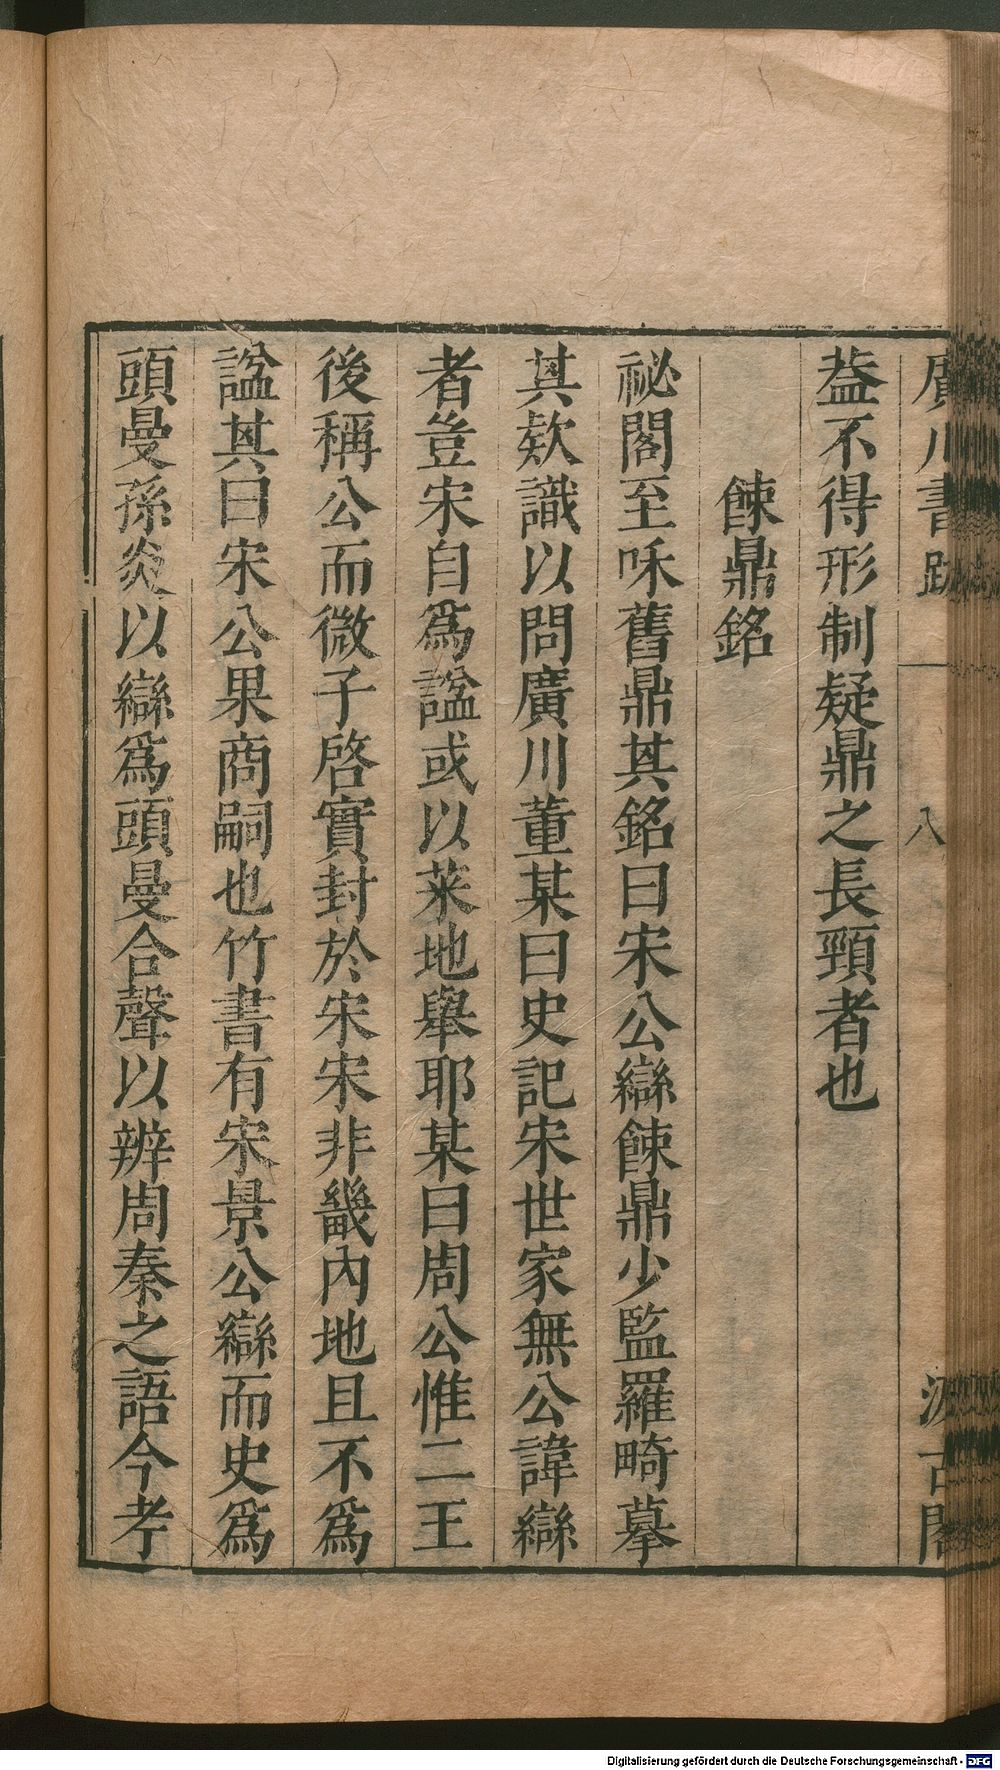 廣川書跋 八 汲古閣
葢不得形制疑鼎之長頸者也
餗鼎銘
祕閣至和舊鼎其銘曰宋公䜌餗鼎少監羅畸摹
其欵識以問廣川董某曰史記宋世家無公諱䜌
者豈宋自為諡或以萊地舉耶某曰周公惟二王
後稱公而微子啓實封於宋宋非畿內地且不為
諡其曰宋公果商嗣也竹書有宋景公䜌而史為
頭曼孫炎以䜌為頭曼合聲以辨周秦之語今考
Digitalisierung gefördert durch die Deutsche Forschungsgemeinschaft - DFG